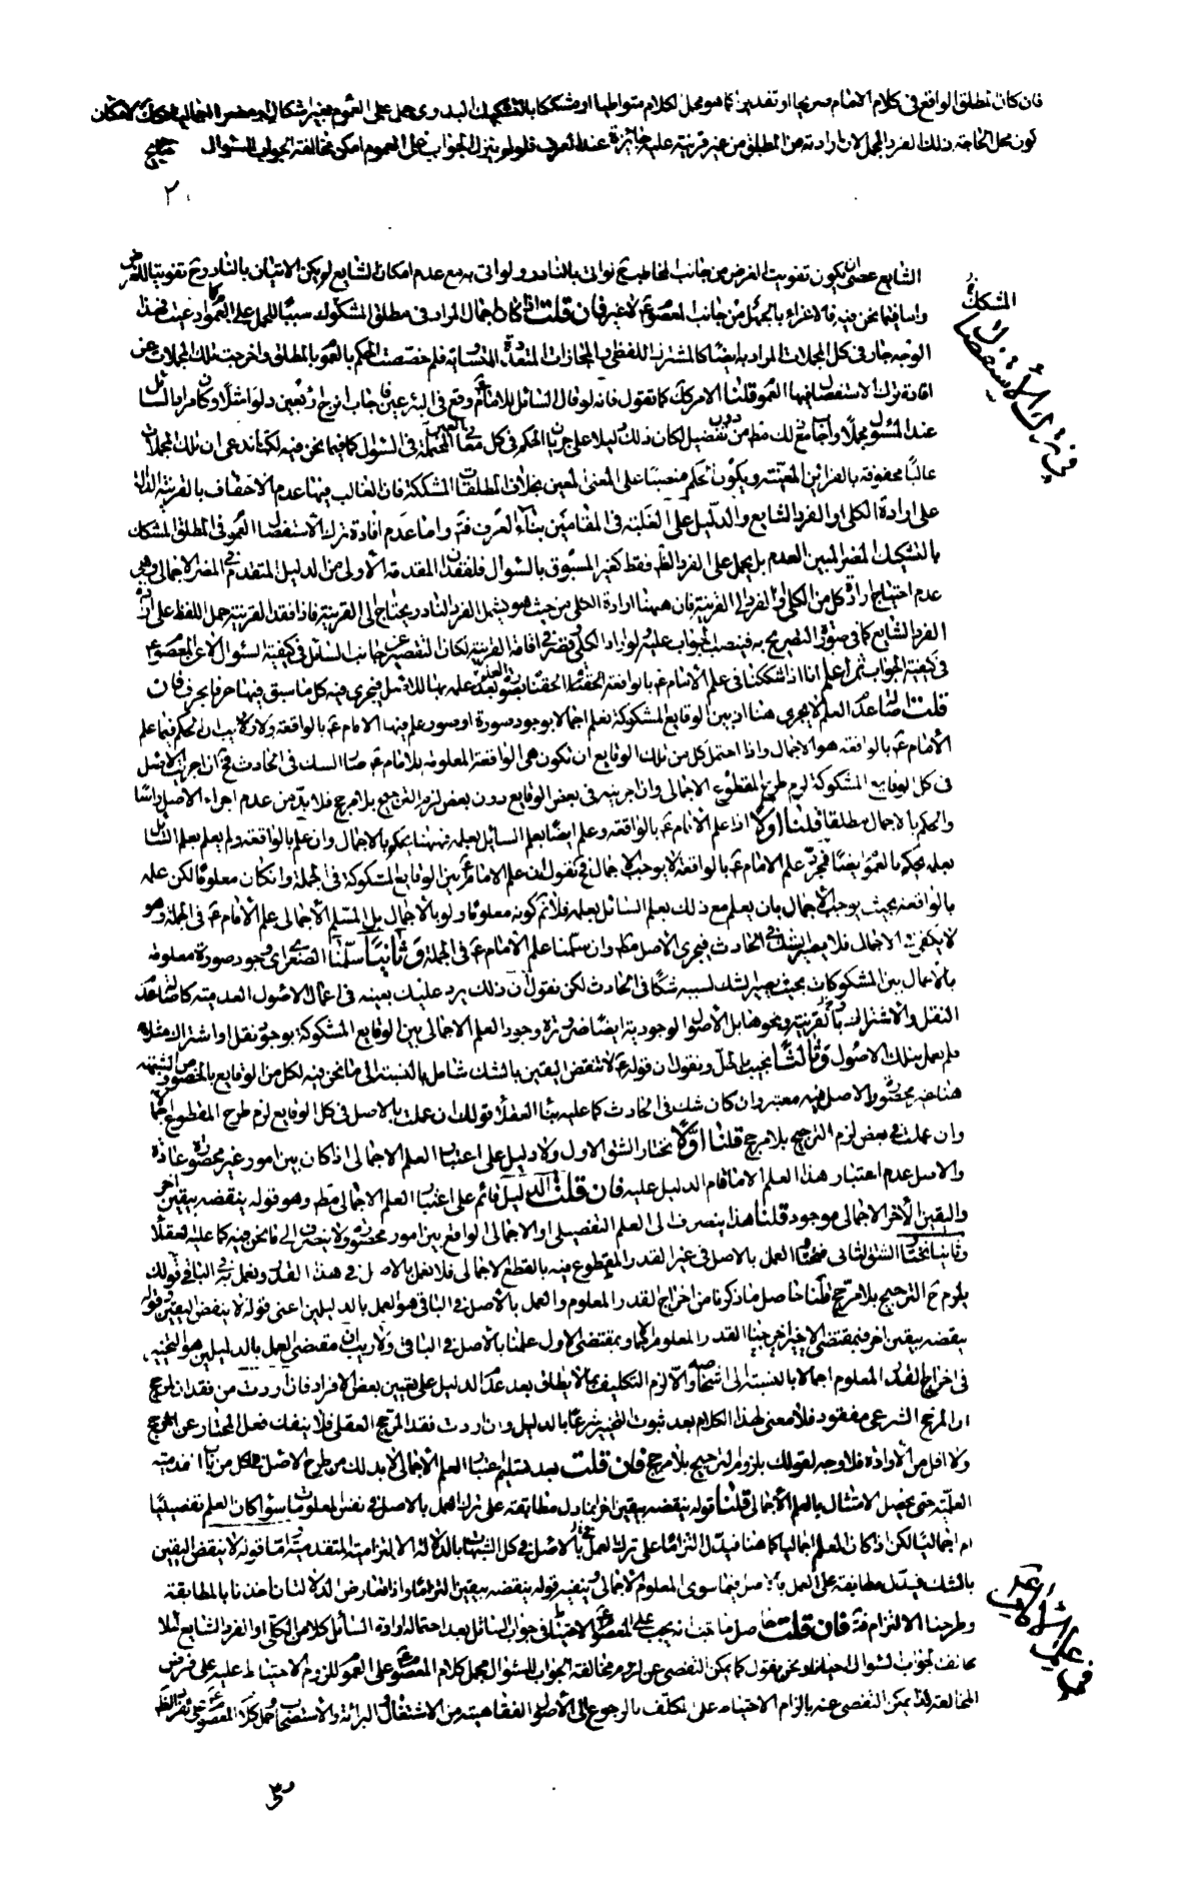 فان كان المطلق الواقع فى كلام الامام صريحا او تقديرا كما هو محل الكلام متواطيا او مشككا بالتشكيك البدوى حمل على العموم بغير اشكال
كون محل الحاجة ذلك الفرد المجمل لان ارادته من المطلق من غير قرينة عليه جائزة عند العرف فلو لم ينزل الجواب على العموم امكن مخالفة الجواب للسؤال
٢
الشايع عصى لان يكون تفويت الغرض من جانب المخاطب ح لو اتى بالنادر ولو اتى به مع عدم امكان الشايع لو يكن الاتيان بالنادر ح تفويتا للغرض
واما فيما نحن فيه فالاغراء بالجهل من جانب المعصوم لا غير فان قلت اذا كان اجمال المراد فى مطلق المشكوك سببا للحمل على العموم فهذا
الوجه جار فى كل المجملات المراد به ايضا كالمشترك اللفظى والمجازات المتعددة المتساوية فلم خصصت الحكم بالعمو بالمطلق واخرجت تلك المجملات عن
افادة ترك الاستفصال فيها العمو قلنا الامر كك كما تقول فانه لو قال السائل للامام وقع فى البئر عين فاجاب انزح اربعين دلوا مثلا وكان مراد السائل
عند المسئول مجملا واجابه مع ذلك مط من دون تفصيل لكان ذلك دليلا على جريان الحكم فى كل معانى العين المحتملة فى السؤال كما فيما نحن فيه لكنا ندعى ان تلك المجملات
غالبا محفوفة بالقرائن المعينة ويكون الحكم منصبا على المعنى المعين بخلاف المطلقات المشككة فان الغالب فيها عدم الاحتفاف بالقرينة الدالة
على ارادة الكلى او الفرد الشايع والدليل على الغلبة فى المقامين بناء العرف فت واما عدم افادة ترك الاستفصال العمو فى المطلق المشكك
بالتشكيك المضر المبين العدم بل يحمل على الفرد الظ فقط كغير المسبوق بالسؤال فلفقد المقدمة الاولى من الدليل المتقدم فى المضر الاجمالى وهى
عدم احتياج ارادة كل من الكلى والفرد الى القرينة فان ههنا ارادة الكلى من حيث هو يشمل الفرد النادر يحتاج الى القرينة فاذا فقد القرينة حمل اللفظ على
الفرد الشايع كما فى صورة التصريح به فينصب الجواب عليه ولو اراد الكلى وقصر فى اقامة القرينة لكان التقصير من جانب السائل فى كيفية السؤال لا عن المعصوم
فى كيفية الجواب ثم اعلم انا اذا شككنا فى علم الامام ع بالواقعة الحقناها بصورة العلم بعدم علمه بها لذلك الاصل فيجرى فيه كل ما سبق فيها حرفا بحرف فان
قلت اصالة عدم العلم لا يجرى هنا اذ بين الوقايع المشكوكة نعلم اجمالا بوجود صورة او صور علم فيها الامام ع بالواقعة ولا ريب ان الحكم فيما علم
الامام ع بالواقعة هو الاجمال واذا احتمل كل من تلك الوقايع ان تكون هى الواقعة المعلومة للامام ع صار الشك فى الحادث فح ان اجريت الاصل
فى كل الوقايع المشكوكة لزم طرح المقطوع الاجمالى وان اجريته فى بعض الوقايع دون بعض لزم الترجيح بلا مرجح فلا بد من عدم اجراء الاصل راسا
والحكم بالاجمال مطلقا قلنا اولا اذا علم الامام ع بالواقعة وعلم ايضا بعلم السائل بعلمه فههنا يحكم بالاجمال وان علم بالواقعة ولم يعلم بعلم السائل
بعلمه يحكم بالعمو ايضا فمجرد علم الامام ع بالواقعة لا يوجب الاجمال فح نقول ان علم الامام ع بين الوقايع المشكوكة فى الجملة وان كان معلوما لكن علمه
بالواقعة بحيث يوجب الاجمال بان يعلم مع ذلك بعلم السائل بعلمه فلا نم كونه معلوما ولو بالاجمال بل المسلم الاجمالى علم الامام ع فى الجملة وهو
لا يكفى فى الاجمال فلا يصير الشك فى الحادث فيجرى الاصل مط وان سلمنا علم الامام ع فى الجملة وثانيا سلمنا الصغرى اى وجود صورة معلومة
بالاجمال بين المشكوكات بحيث يصير الشك لسببه شكا فى الحادث لكن نقول ان ذلك يرد عليك بعينه فى اعمال الاصول العدمية كاصالة عدم
النقل والاشتراك والقرينة ونحوها بل الاصول الوجودية ايضا ضرورة وجود العلم الاجمالى بين الوقايع المشكوكة بوجود نقل او اشتراك مثلا
فلم يعمل بتلك الاصول وثالثا نجيب بالحل ونقول ان قوله ع لا تنقض اليقين بالشك شامل بالنسبة الى ما نحن فيه لكل من الوقايع بالخصوص
هنا غير محصورة والاصل فيه معتبر وان كان شك فى الحادث كما عليه بناء العقلاء قولك ان عملت بالاصل فى كل الوقايع لزم طرح المقطوع اجمالا
وان عملت فى بعض لزم الترجيح بلا مرجح قلنا اولا نختار الشق الاول ولا دليل على اعتبار العلم الاجمالى اذا كان بين امور غير محصورة عادة
والاصل عدم اعتبار هذا العلم الا ما قام الدليل عليه فان قلت الدليل قائم على اعتبار العلم الاجمالى مط وهو قوله ينقضه بيقين اخر
واليقين الاخر الاجمالى موجود قلنا هذا ينصرف الى العلم التفصيلى او الاجمالى الواقع بين امور محصورة ولا ينصرف الى ما نحن فيه كما عليه العقلاء
وثانيا نختار الشق الثانى العمل بالاصل فى غير القدر المقطوع منه بالقطع الاجمالى فلا نعمل بالاصل فى هذا القدر ونعمل به فى الباقى قولك
يلزم ح الترجيح بلا مرجح قلنا حاصل ما ذكرنا من اخراج القدر المعلوم والعمل بالاصل فى الباقى هو العمل بالدليلين اعنى قوله لا ينقض اليقين وقوله
ينقضه بيقين اخر فبمقتضى الاخير اخرجنا القدر المعلوم وبمقتضى الاول عملنا بالاصل فى الباقى ولا ريب ان مقتضى العمل بالدليلين هو التخيير
فى اخراج القدر المعلوم اجمالا بالنسبة الى اشخاصه والا لزم التكليف بما لا يطاق بعد عدم الدليل على تعيين بعض الافراد فان اردت من فقدان المرجح
ان المرجح الشرعى مفقود فلا معنى لهذا الكلام بعد ثبوت التخيير شرعا بالدليل وان اردت فقد المرجح العقلى فلا ينفك فعل المختار عن المرجح
ولا اقل من الارادة فلا وجه لقولك بلزوم الترجيح بلا مرجح فان قلت بعد تسليم اعتبار العلم الاجمالى لا بد لك من طرح الاصل فى كل من باب المقدمة
العلمية حتى يحصل الامتثال بالعلم الاجمالى قلنا قوله ينقضه بيقين اخر انما دل مطابقة على ترك العمل بالاصل فى نفس المعلومات سواء كان العلم تفصيليا
ام اجماليا لكن اذا كان العلم اجماليا كما هنا فيدل التزاما على ترك العمل بالاصل فى كل الشبهات بالدلالة الالتزامية المقدمية اما قوله لا ينقض اليقين
بالشك فيدل مطابقة على العمل بالاصل فيما سوى المعلوم الاجمالى وينفيه قوله ينقضه بيقين التزاما واذا تعارض الدلالتان اخذنا بالمطابقة
وطرحنا الالتزام فت فان قلت حاصل ما ثبت انه يجب على المعصوم الاحتياط فى جواب السائل بعد احتماله ارادة السائل كلا من الكلى او الفرد الشايع لئلا
يخالف الجواب السؤال احيانا ونحن نقول كما يمكن التفصى عن لزوم مخالفة الجواب للسؤال بحمل كلام المعصوم على العمو للزوم الاحتياط عليه على فرض
المخالفة كذا يمكن التفصى عنه بالزام الاحتياط على المكلف بالرجوع الى الاصول الفقاهية من الاشتغال والبرائة والاستصحاب
المشكك
فى ترك الاستفصال
٣